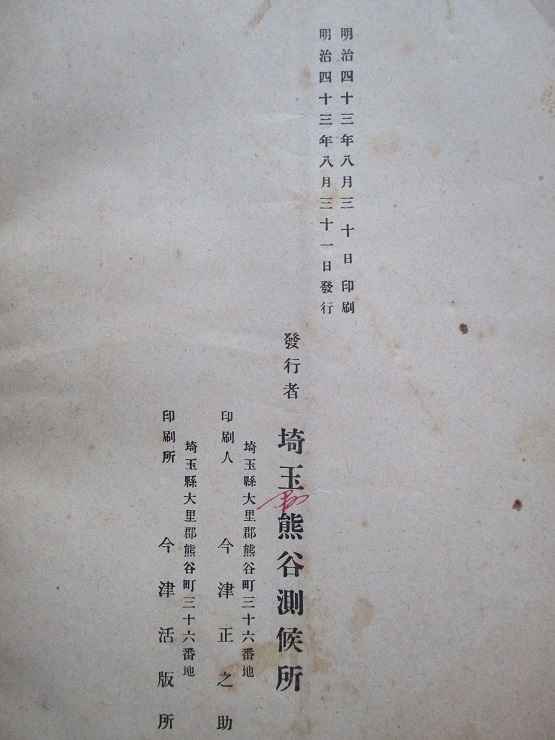 明治四十三年八月三十日印刷
明治四十三年八月三十一日發行
發行者 埼玉熊谷測候所
埼玉縣大里郡熊谷町三十六番地
印刷人 今津正之助
埼玉縣大里郡熊谷町三十六番地
印刷所 今津活版所